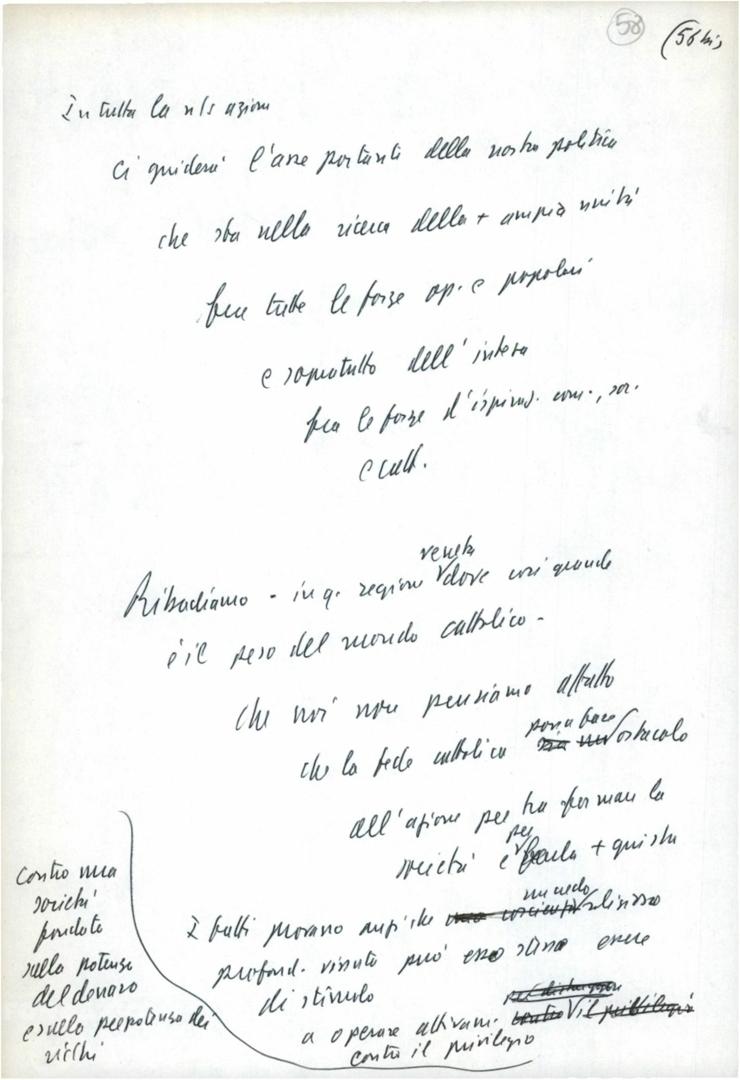 58 (56 bis
In tutta la n/s azione
ci guiderà l'asse portante della nostra politica
che sta nella ricerca della + ampia unità
fra tutte le forze op. e popolari
e soprattutto dell'intesa
fra le forze d'ispiraz. com., soc.
e catt.
veneta
Ribadiamo - in q. regione dove così grande
è il peso del mondo cattolico -
che noi non pensiamo affatto
possa fare
che la fede cattolica sia un ostacolo
all'azione per trasformare la
per
società e farla + giusta
un credo
I fatti provano anzi che una coscienza religioso
profond. vissuto può esso stesso essere
di stimolo
per distruggere
a operare attivam. contro il privilegio
contro il privilegio
contro una
società
fondata
sulla potenza
del denaro
e sulla prepotenza dei
ricchi